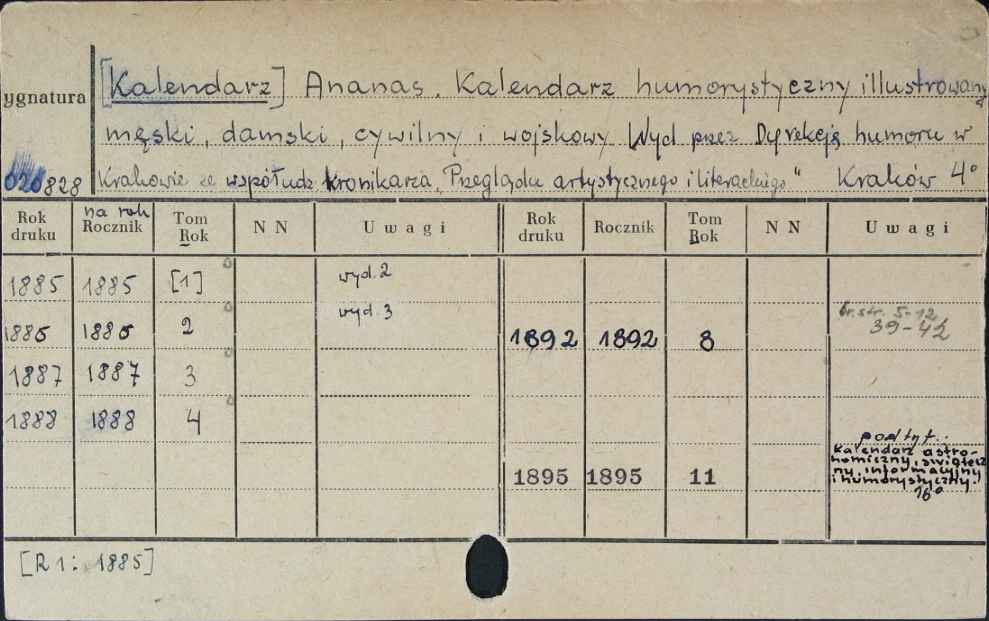 [Kalendarz] Ananas. Kalendarz humorystyczny illustrowany
ygnatura
męski, damski, cywilny i wojskowy Wyd przez Dyrekcję humoru w
828 Krakowie ze współudz kronikarza „Przeglądu artystycznego i literackiego" Kraków 4°
Rok druku na rok Rocznik Tom Rok NN Uwagi Rok druku Rocznik Tom Rok NN Uwagi
1885 1885 [1] wyd. 2
1886 1886 2 wyd. 3 1892 1892 8 br. str. 5-12 39-42
1887 1887 3
1888 1888 4
1895 1895 11 podtyt.: Kalendarz astronomiczny, świąteczny, informacyjny i humorystyczny. 16°
[R 1: 1885]